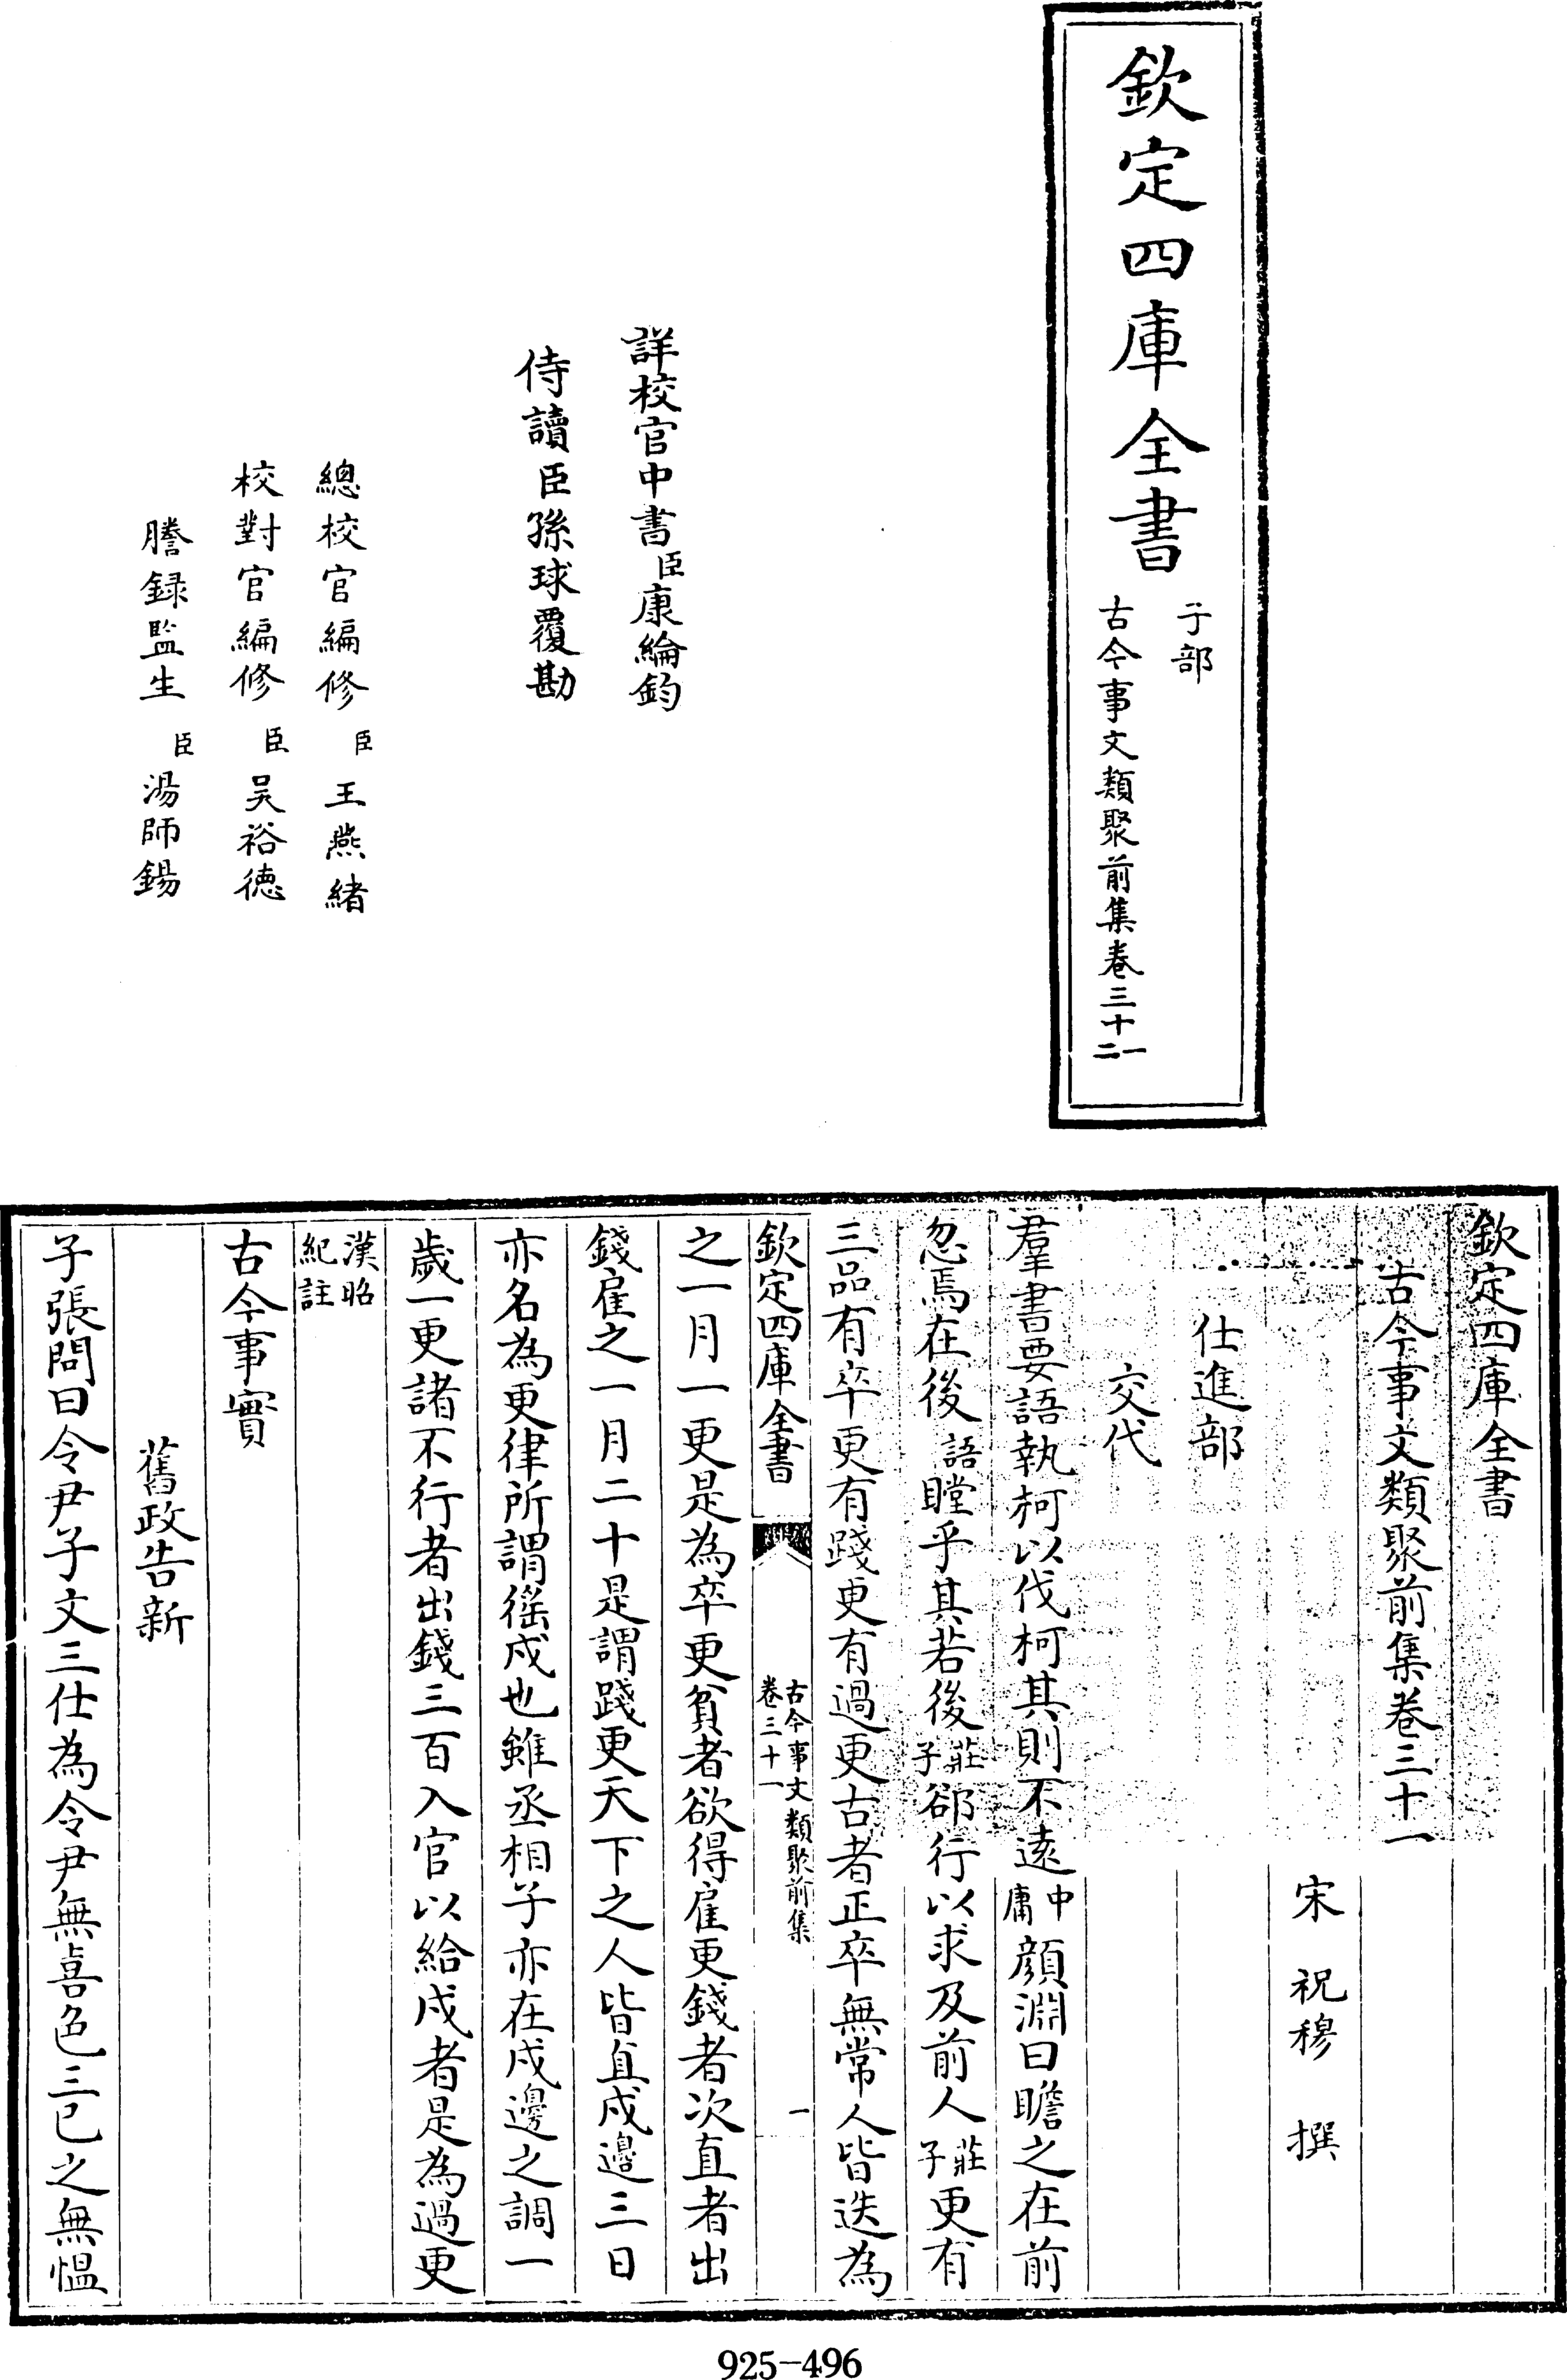 欽定四庫全書
子部
古今事文類聚前集卷三十一二
詳校官中書臣康綸鈞
侍讀臣孫球覆勘
總校官編修臣王燕緒
校對官編修臣吴裕德
謄録監生臣湯師錫
欽定四庫全書
古今事文類聚前集卷三十一
宋 祝穆 撰
仕進部
交代
羣書要語執柯以伐柯其則不遠中庸顔淵曰瞻之在前
忽焉在後語瞠乎其若後莊子郤行以求及前人莊子更有
三品有卒更有踐更有過更古者正卒無常人皆迭為
欽定四庫全書
古今事文類聚前集
卷三十一
一
之一月一更是為卒更貧者欲得雇更錢者次直者出
錢雇之一月二十是謂踐更天下之人皆直戍邊三日
亦名為更律所謂徭戍也雖丞相子亦在戍邊之調一
歲一更諸不行者出錢三百入官以給戍者是為過更
漢昭紀註
古今事實
舊政告新
子張問曰令尹子文三仕為令尹無喜色三已之無愠
925-496